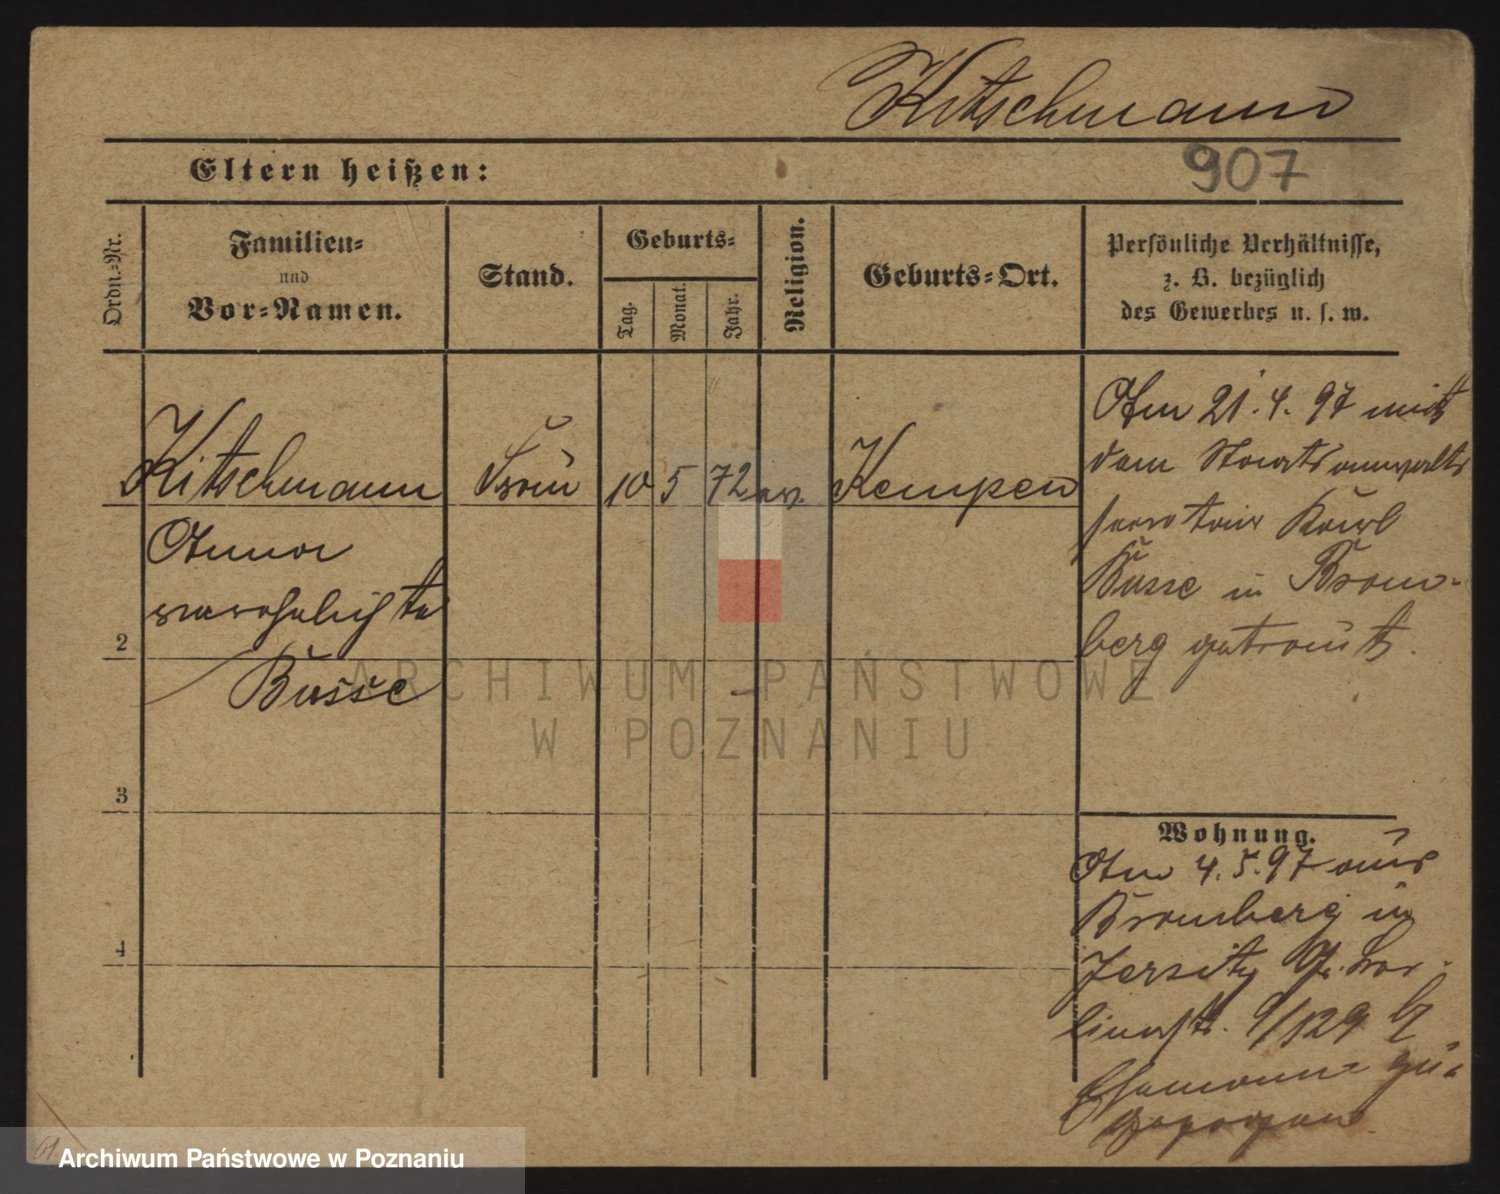 Kitschmann
907
Eltern heißen:
Ordn.=Nr.
Familien=
und
Vor=Namen.
Stand.
Geburts=
Tag.
Monat.
Jahr.
Religion.
Geburts=Ort.
Persönliche Verhältnisse,
z. B. bezüglich
des Gewerbes u. s. w.
Kitschmann Frau 10 5 72 ev. Kempen
Anna
verehelichte
Busse
2
3
4
Am 21. 4. 97 mit
dem Staatsanwalts
secretair Karl
Busse in Brom-
berg getraut.
Wohnung.
Am 4. 5. 97 aus
Bromberg in
Jersitz Gr. Ber-
linerstr. 9/129
Ehemann zu-
gezogen
ARCHIWUM PAŃSTWOWE
W POZNANIU
Archiwum Państwowe w Poznaniu